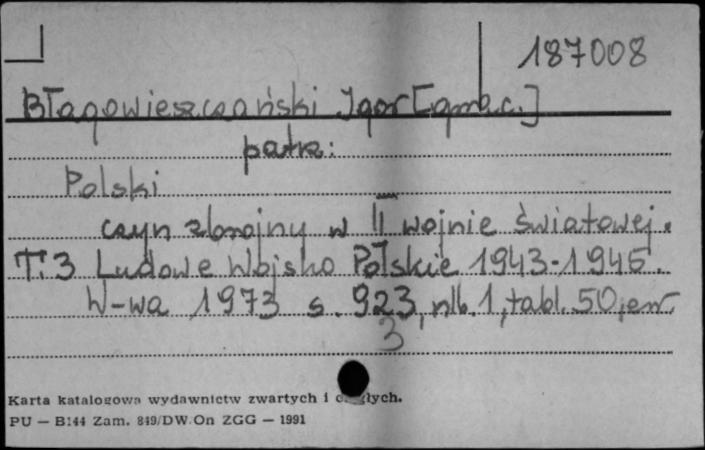 187008
Błagowieszczański Igor [gm.b.c.]
patrz:
Polski
czyn zbrojny w II wojnie światowej.
T.3 Ludowe Wojsko Polskie 1943-1945
W-wa 1973 s. 923, nlb. 1, tabl. 50, err.
3
Karta katalogowa wydawnictw zwartych i ciągłych.
PU — B144 Zam. 849/DW.On ZGG — 1991